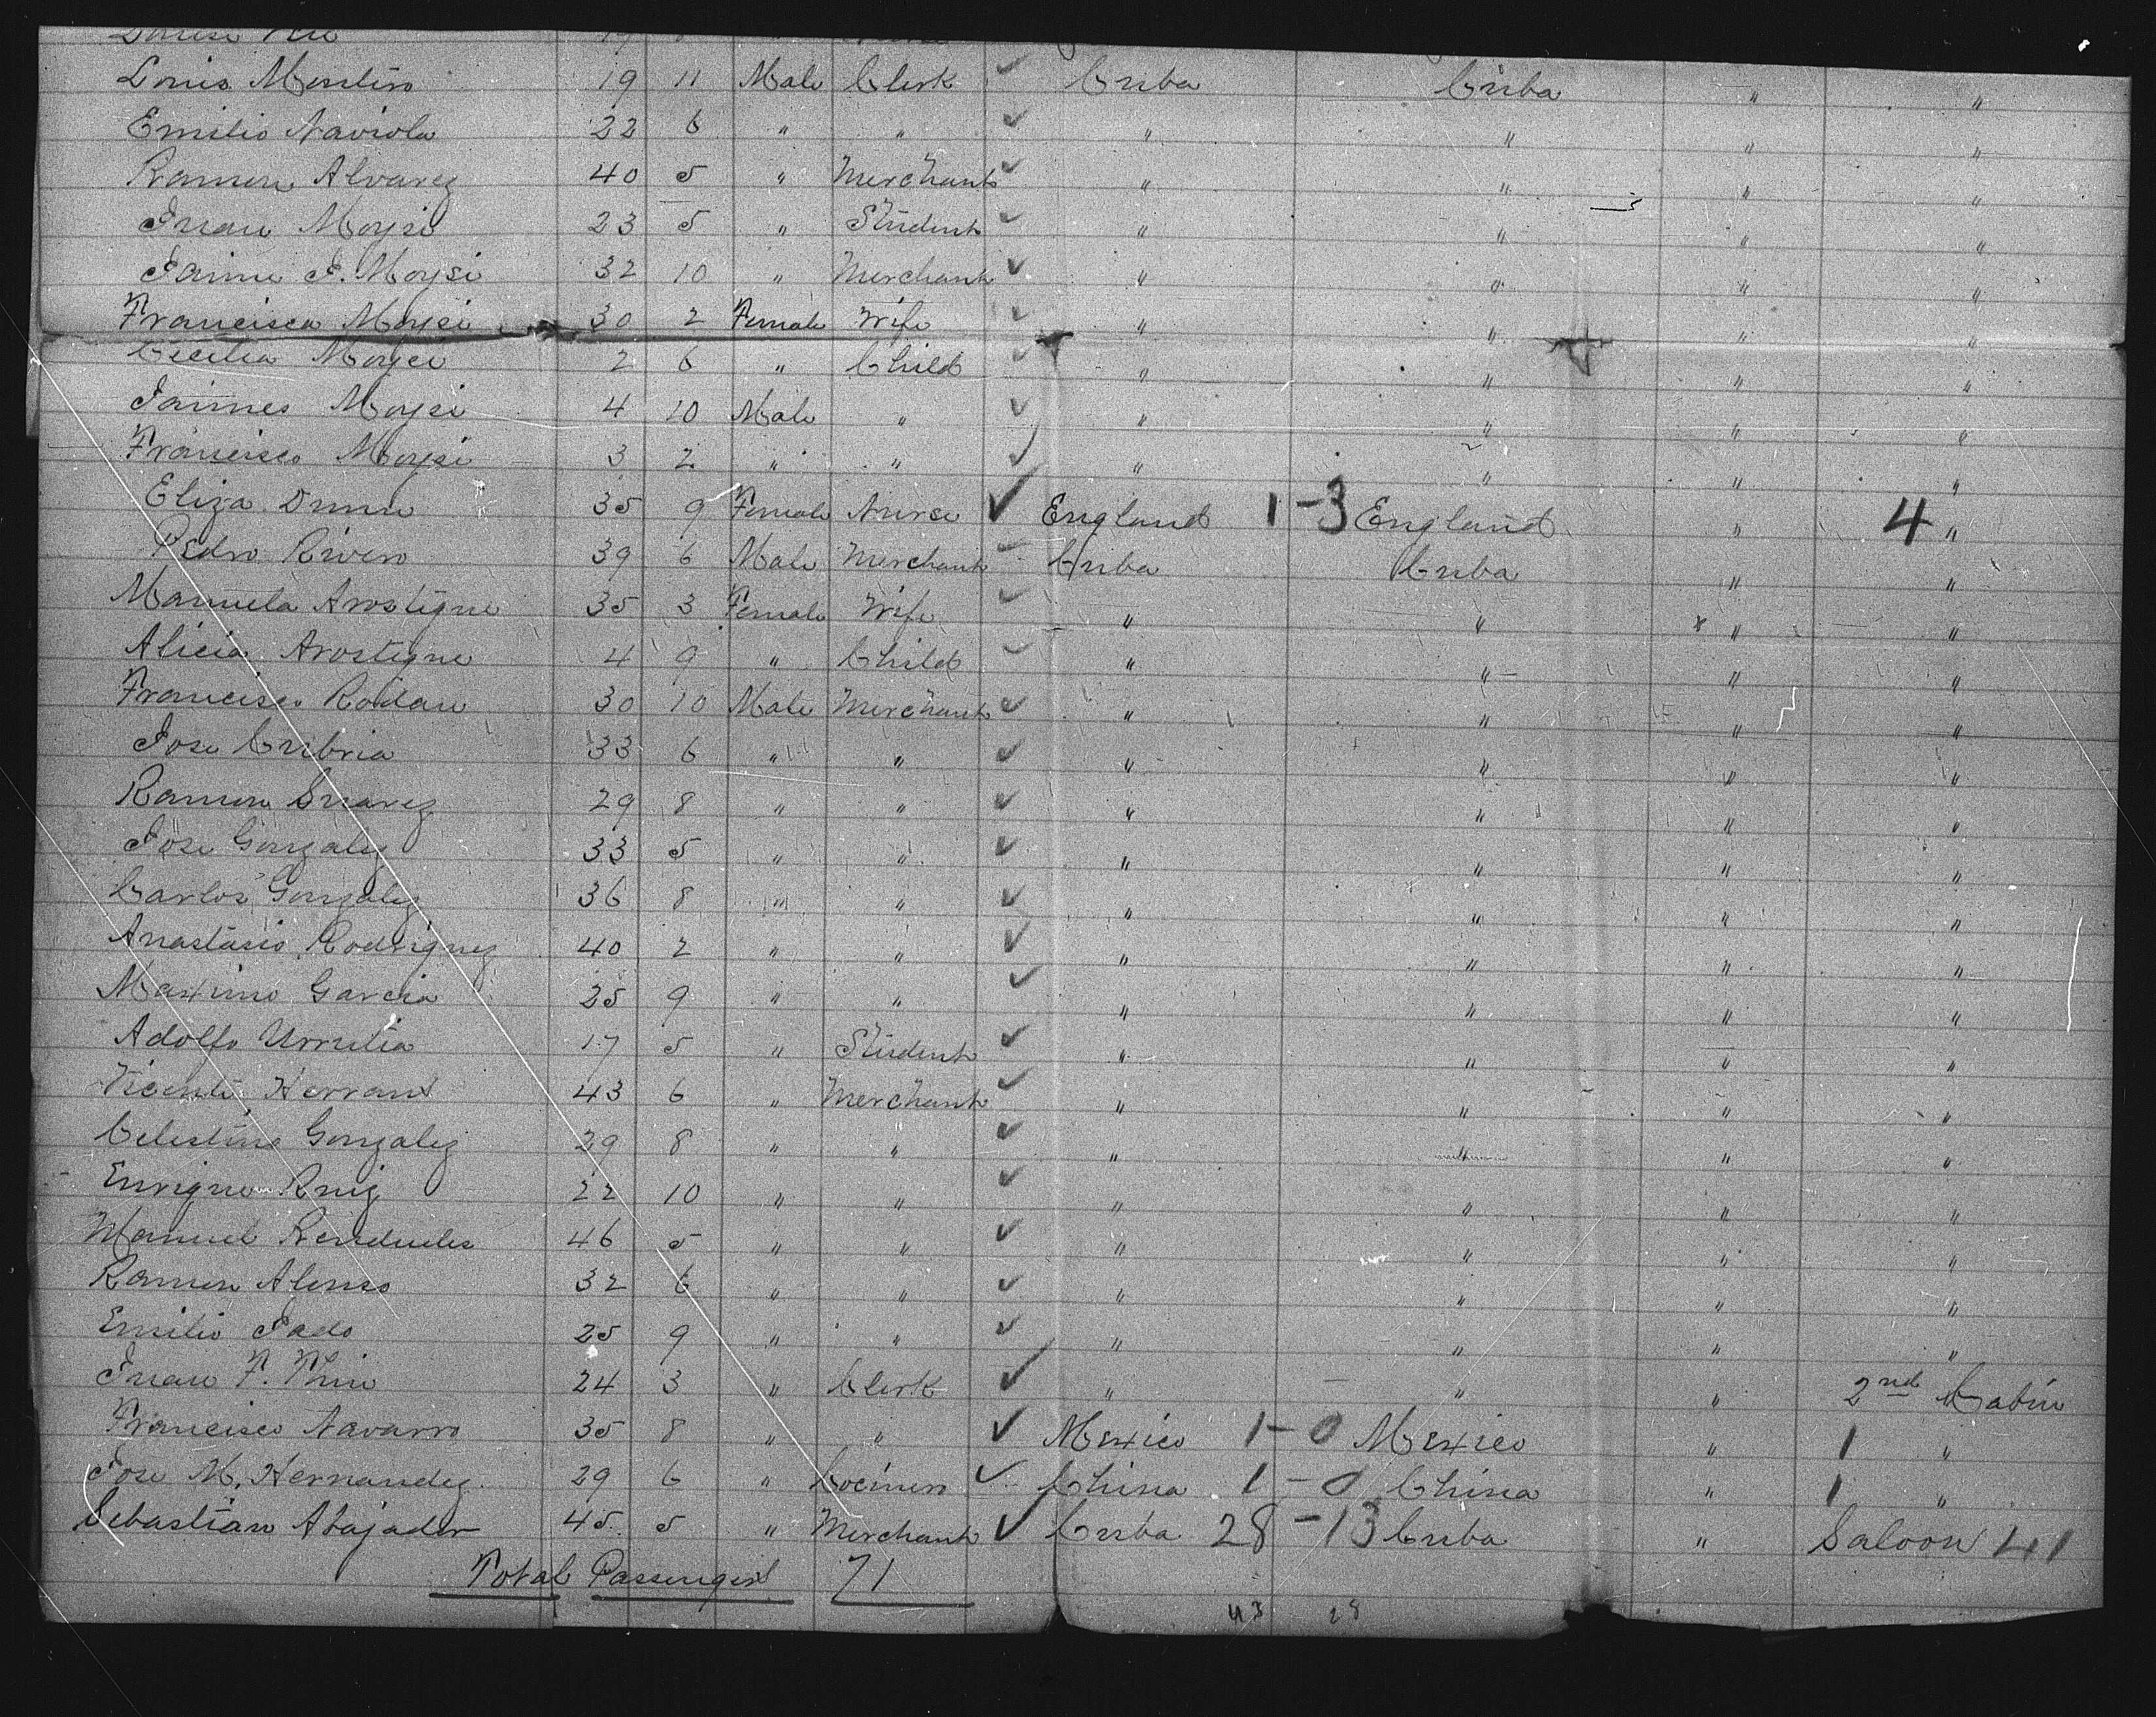 Louis Montero 19 11 Male Clerk ✓ Cuba Cuba " "
Emilio Naviola 22 6 " " ✓ " " " "
Ramon Alvarez 40 5 " Merchant ✓ " " " "
Juan Moysi 23 5 " Student ✓ " " " "
Jaime J. Moysi 32 10 " Merchant ✓ " " " "
Francisca Moysi 30 2 Female Wife ✓ " " " "
Cecilia Moysi 2 6 " Child ✓ " " " "
Jaimes Moysi 4 10 Male " ✓ " " " "
Francisco Moysi 3 2 " " ✓ " " " "
Eliza Dunn 35 9 Female Nurse ✓ England 1-3 England " 4 "
Pedro Rivero 39 6 Male Merchant ✓ Cuba Cuba " "
Manuela Arostigue 35 3 Female Wife ✓ " " " "
Alicia Arostigue 4 9 " Child ✓ " " " "
Francisco Roldan 30 10 Male Merchant ✓ " " " "
Jose Cubria 33 6 " " ✓ " " " "
Ramon Suarez 29 8 " " ✓ " " " "
Jose Gonzalez 33 5 " " ✓ " " " "
Carlos Gonzalez 36 8 " " ✓ " " " "
Anastasio Rodriguez 40 2 " " ✓ " " " "
Maximo Garcia 25 9 " " ✓ " " " "
Adolfo Urrutia 17 5 " Student ✓ " " " "
Vicente Herrand 43 6 " Merchant ✓ " " " "
Celestino Gonzalez 29 8 " " ✓ " " " "
Enrique Ruiz 22 10 " " ✓ " " " "
Manuel Rendueles 46 5 " " ✓ " " " "
Ramon Alonso 32 6 " " ✓ " " " "
Emilio Jado 25 9 " " ✓ " " " "
Juan F. 24 3 " Clerk ✓ " " " 2nd Cabin
Francisco Navarro 35 8 " " ✓ Mexico 1-0 Mexico " 1 "
Jose M. Hernandez 29 6 " Cocinero ✓ China 1-0 China " 1 "
Sebastian Abajador 45 5 " Merchant ✓ Cuba 28-13 Cuba " Saloon 41
Total Passengers 71
43 28